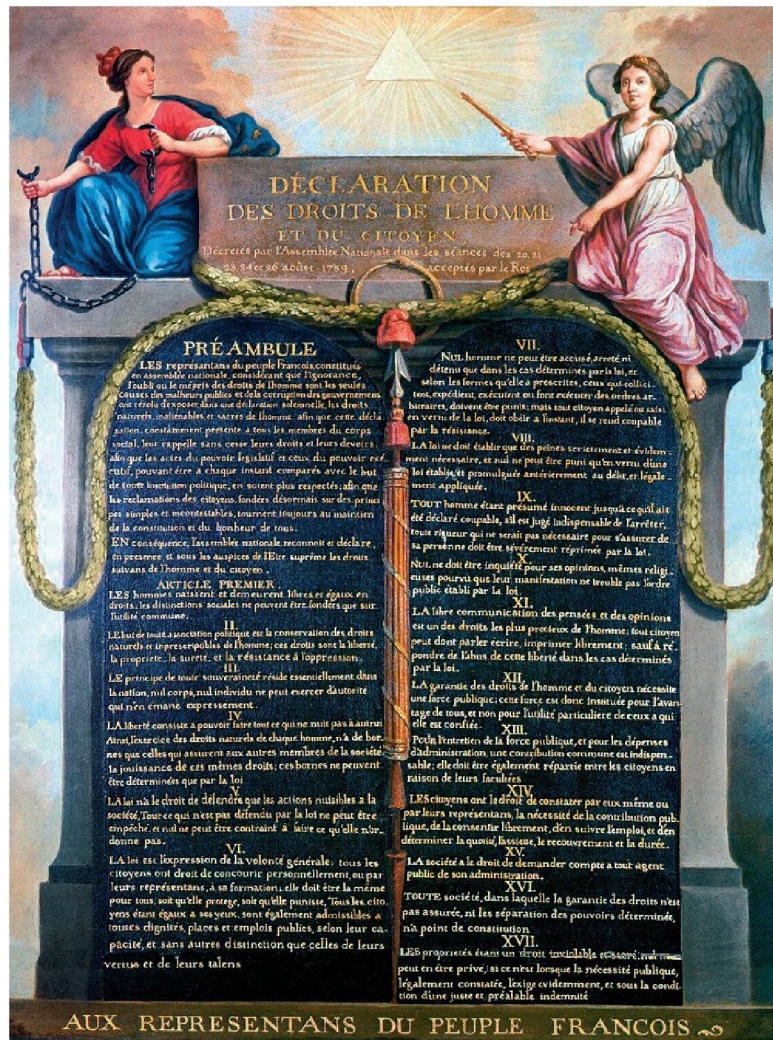 DÉCLARATION
DES DROITS DE L'HOMME
ET DU CITOYEN,
Décretés par l'Assemblée Nationale dans les séances des 20, 21
23, 24 et 26 août 1789, acceptés par le Roi
PRÉAMBULE
LES représentans du peuple François, constitués
en assemblée nationale, considérant que l'ignorance,
l'oubli ou le mépris des droits de l'homme sont les seules
causes des malheurs publics et de la corruption des gouvernemens
ont résolu d'exposer dans une déclaration solemnelle, les droits
naturels, inaliénables et sacrés de l'homme: afin que cette décla-
ration, constamment présente à tous les membres du corps
social, leur rappelle sans cesse leurs droits et leurs devoirs,
afin que les actes du pouvoir législatif et ceux du pouvoir exé-
cutif, pouvant être à chaque instant comparés avec le but
de toute institution politique, en soient plus respectés; afin que
les reclamations des citoyens, fondées désormais sur des princi-
pes simples et incontestables, tournent toujours au maintien
de la constitution et du bonheur de tous.
EN conséquence, l'assemblée nationale reconnoit et déclare,
en presence et sous les auspices de l'Etre suprême les droits
suivans de l'homme et du citoyen.
ARTICLE PREMIER.
LES hommes naissent et demeurent libres et égaux en
droits. les distinctions sociales ne peuvent être fondées que sur
l'utilité commune.
II.
LE but de toute association politique est la conservation des droits
naturels et inprescriptibles de l'homme; ces droits sont la liberté,
la propriété, la sureté, et la résistance à l'oppression.
III.
LE principe de toute souveraineté réside essentiellement dans
la nation, nul corps, nul individu ne peut exercer d'autorité
qui n'en émane expressement.
IV.
LA liberté consiste a pouvoir faire tout ce qui ne nuit pas à autrui
Ainsi, l'exercice des droits naturels de chaque homme, n'a de bor-
nes que celles qui assurent aux autres membres de la société
la jouissance de ces mêmes droits; ces bornes ne peuvent
être déterminées que par la loi
V.
LA loi n'a le droit de défendre que les actions nuisibles a la
société. Tout ce qui n'est pas défendu par la loi ne peut être
empêché, et nul ne peut être contraint à faire ce qu'elle n'or-
donne pas.
VI.
LA loi est l'expression de la volonté générale; tous les
citoyens ont droit de concourir personnellement, ou par
leurs représentans, à sa formation; elle doit être la même
pour tous, soit qu'elle protege, soit qu'elle punisse, Tous les cito-
yens étant égaux a ses yeux, sont également admissibles a
toutes dignités, places et emplois publics, selon leur ca-
pacité, et sans autres distinction que celles de leurs
vertus et de leurs talens
VII.
NUL homme ne peut être accusé, arreté, ni
détenu que dans les cas déterminés par la loi, et
selon les formes qu'elle a prescrites, ceux qui sollici-
tent, expédient, exécutent ou font exécuter des ordres ar-
bitraires, doivent être punis; mais tout citoyen appelé ou saisi
en vertu de la loi, doit obéir a l'instant, il se rend coupable
par la résistance.
VIII.
LA loi ne doit établir que des peines strictement et évidem-
ment nécessaire, et nul ne peut être puni qu'en vertu d'une
loi établie, et promulguée antérierement au délit, et légale-
ment appliquée.
IX.
TOUT homme étant présumé innocent jusqu'a ce qu'il ait
été déclaré coupable, s'il est jugé indispensable de l'arrêter,
toute rigueur qui ne serait pas nécessaire pour s'assurer de
sa personne doit être sévèrement réprimée par la loi.
X.
NUL ne doit être inquiété pour ses opinions, mêmes religi-
euses pourvu que leur manifestation ne trouble pas l'ordre
public établi par la loi.
XI.
LA libre communication des pensées et des opinions
est un des droits les plus precieux de l'homme; tout citoyen
peut dont parler écrire, imprimer librement; sauf à ré-
pondre de l'abus de cette liberté dans les cas déterminés
par la loi.
XII.
LA garantie des droits de l'homme et du citoyen nécessite
une force publique; cette force est donc instituée pour l'avan-
tage de tous, et non pour l'utilité particuliere de ceux a qui
elle est confiée.
XIII.
POUR l'entretien de la force publique, et pour les dépenses
d'administration, une contribution commune est indispen-
sable; elle doit être également répartie entre les citoyens en
raison de leurs facultées
XIV.
LES citoyens ont le droit de constater par eux même ou
par leurs représentans, la nécessité de la contribution pub-
lique, de la consentir librement, d'en suivre l'emploi, et d'en
déterminer la quotité, l'assiette, le recouvrement et la durée.
XV.
LA société a le droit de demander compte a tout agent
public de son administration.
XVI.
TOUTE société, dans laquelle la garantie des droits n'est
pas assurée, ni les séparation des pouvoirs déterminée,
n'a point de constitution
XVII.
LES propriétés étant un droit inviolable et sacré, nul ne
peut en être privé, si ce n'est lorsque la nécessité publique,
légalement constatée, l'exige evidemment, et sous la condi-
tion d'une juste et préalable indemnité
AUX REPRESENTANS DU PEUPLE FRANCOIS